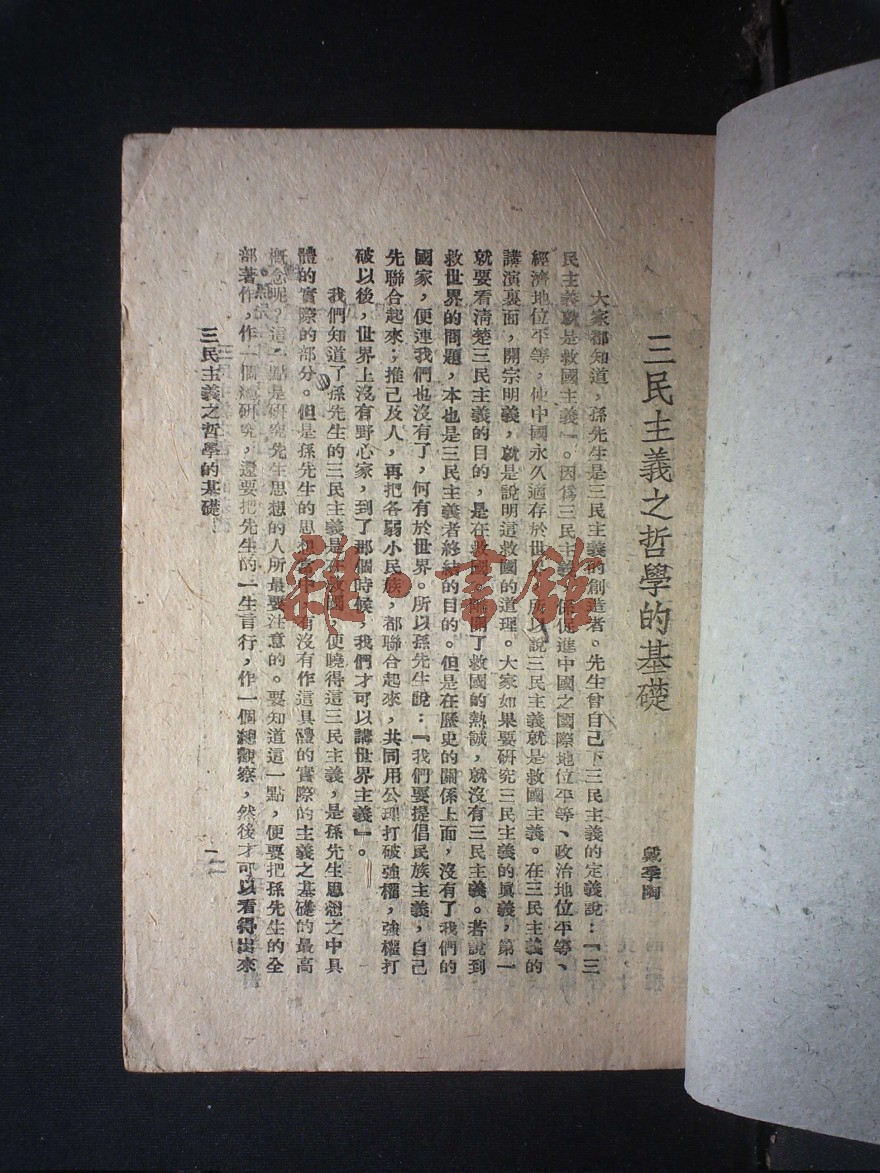 三民主義之哲學的基礎
戴季陶
大家都知道，孫先生是三民主義的創造者。先生曾自己下三民主義的定義說：『三
民主義就是救國主義』。因爲三民主義，係促進中國之國際地位平等、政治地位平等、
經濟地位平等，使中國永久適存於世界，所以說三民主義就是救國主義。在三民主義的
講演裏面，開宗明義，就是說明這救國的道理。大家如果要研究三民主義的眞義，第一
就要看淸楚三民主義的目的，是在救國，離開了救國的熱誠，就沒有三民主義。若說到
救世界的問題，本也是三民主義者終結的目的。但是在歷史的關係上面，沒有了我們的
國家，便連我們也沒有了，何有於世界。所以孫先生說：『我們要提倡民族主義，自己
先聯合起來；推己及人，再把各弱小民族，都聯合起來，共同用公理打破強權，強權打
破以後，世界上沒有野心家，到了那個時候，我們才可以講世界主義』。
我們知道了孫先生的三民主義是在救國，便曉得這三民主義，是孫先生思想之中具
體的實際的部分。但是孫先生的思想當中，有沒有作這具體的實際的主義之基礎的最高
概念呢？這一點是研究先生思想的人所最要注意的。要知道這一點，便要把孫先生的全
部著作，作一個總研究，還要把先生的一生言行，作一個總觀察，然後才可以看得出來
三民主義之哲學的基礎
一
雜·書館